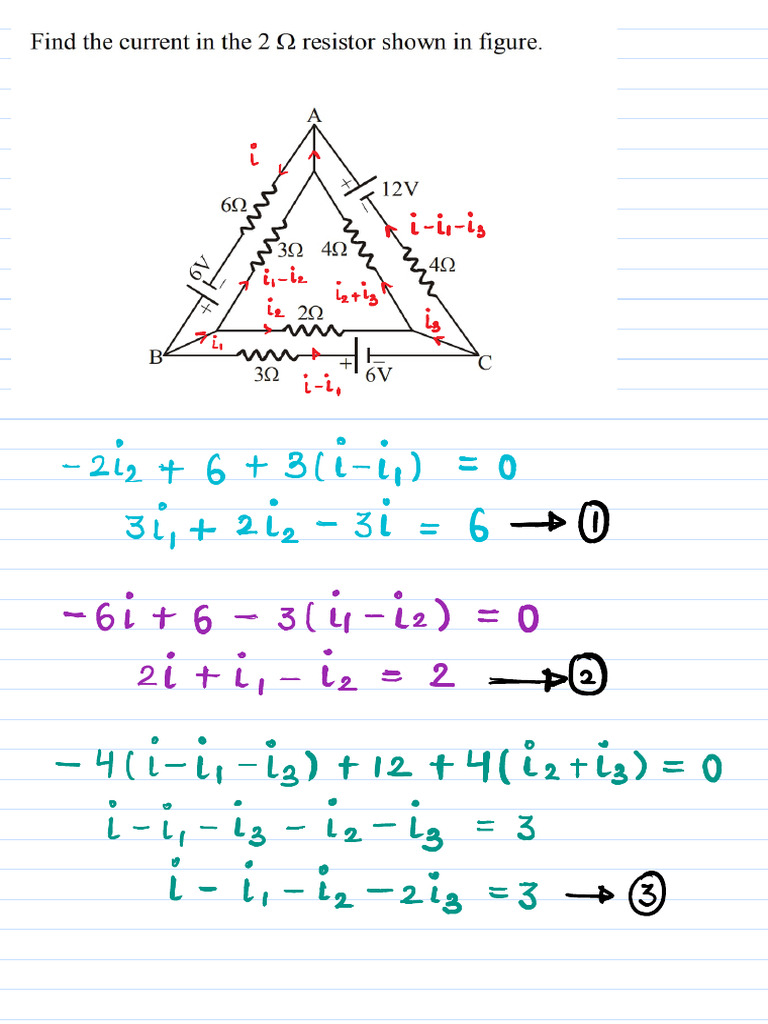 Find the current in the 2 Ω resistor shown in figure.
A
i
12V
+
−
6Ω
i-i₁-i₃
3Ω 4Ω
4Ω
6V
−
+
i₁-i₂
i₂+i₃
i₂
2Ω
i₃
i₁
B
C
3Ω
+
−
6V
i-i₁
-2i₂ + 6 + 3(i-i₁) = 0
3i₁ + 2i₂ - 3i = 6 → ①
-6i + 6 - 3(i₁-i₂) = 0
2i + i₁ - i₂ = 2 → ②
-4(i-i₁-i₃) + 12 + 4(i₂+i₃) = 0
i-i₁-i₃-i₂-i₃ = 3
i-i₁-i₂-2i₃ = 3 → ③